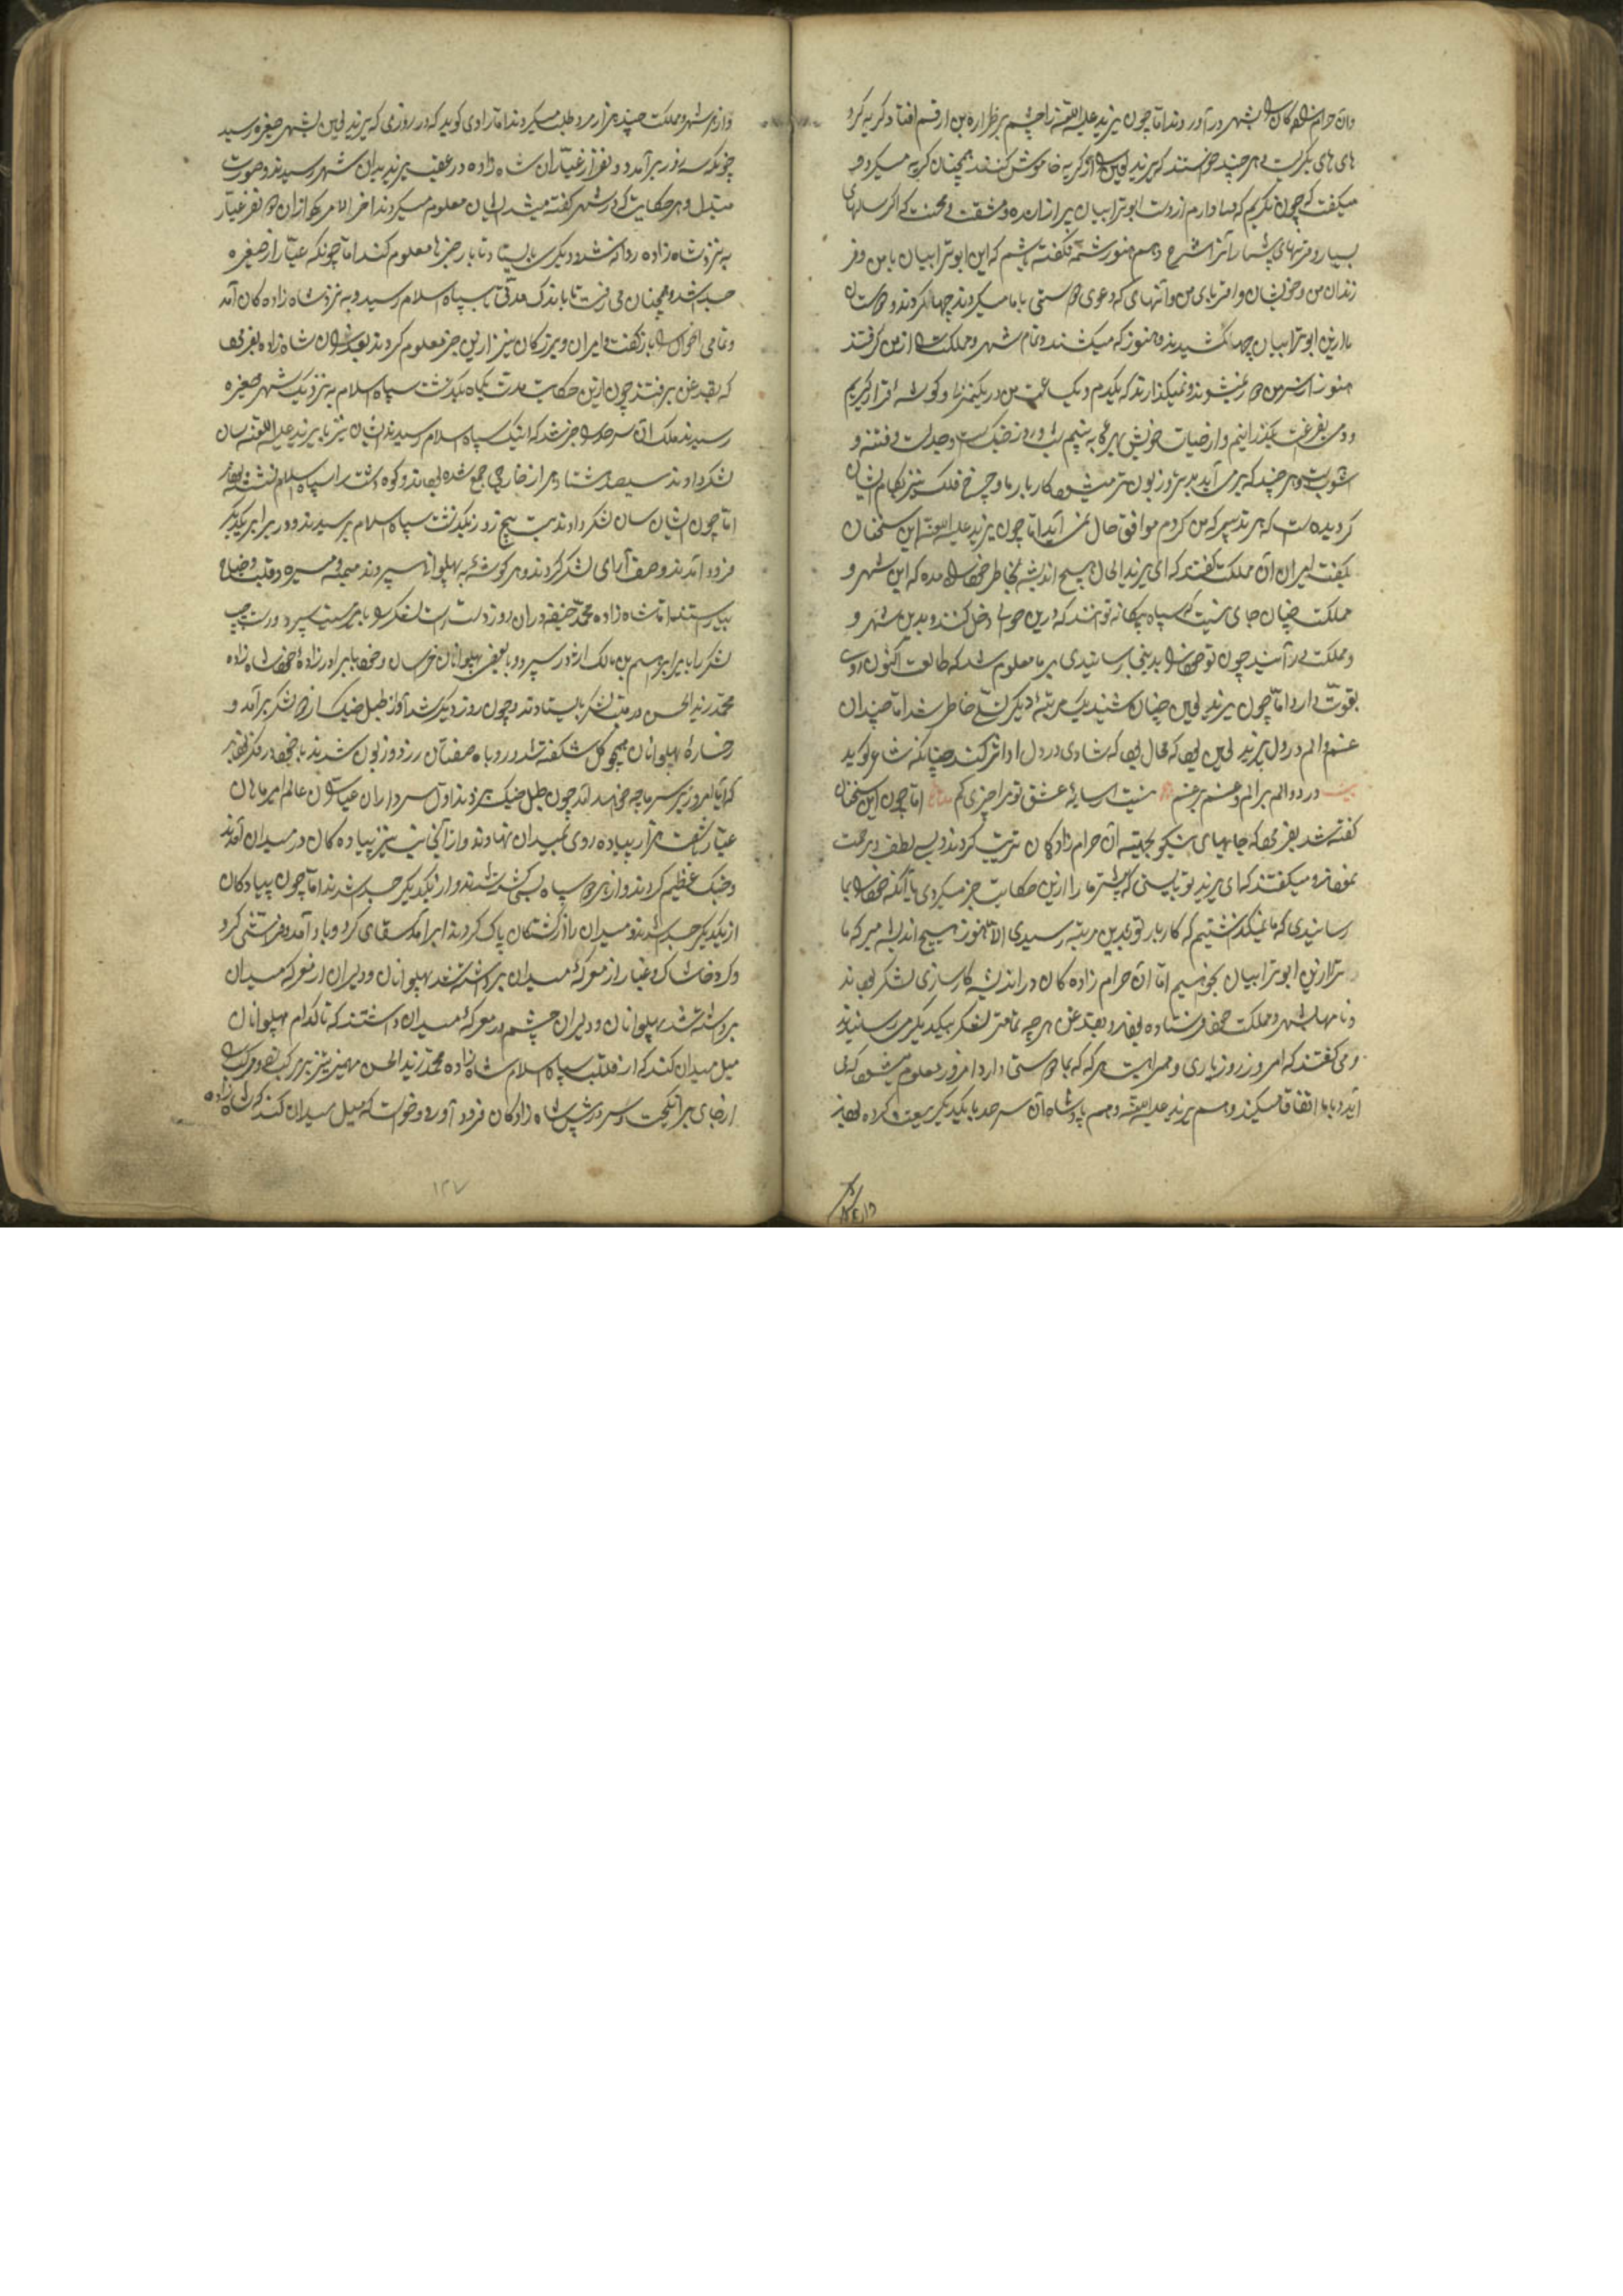 وان حرام زاده‌کان را بشهر در آوردند اما چون یزید علیه اللعنه را چشم بر نظاره بن ارقم افتاد گریه کرد
های های بگریست هرچند خواستند که یزید لعین را از گریه خاموش کنند همچنان گریه میکرد و
میگفت که چون نگریم که فریاد دارم از دست ابوترابیان بیرازنده و مشقت و محنت که اگر سالهای
بسیار و قرنهای بیشمار آنرا شرح دهم هنوز شمه نگفته باشم که این ابوترابیان با من و فر
زندان من و خویشان و اقربای من و آنهای که دعوی دوستی با ما میکردند چها کردند و دوستان
ما ازین ابوترابیان چها کشیدند و هنوز که میکشند و تمام شهر و مملکت را از من گرفتند
هنوز از سر من دور نمیشوند و نمیگذارند که یکدم و یک ساعت من در یکمنزل و گوشه قرار گیریم
و دمی بفراغت بگذرانیم و از حیات خویش بهره بینیم شب و روز جنگ است و جدل است و فتنه و
آشوب است و هرچند که برمی آید بدتر و زبون تر میشود کار بار ما و چرخ فلک نیز بکام ایشان
گردیده است که هر تدبیر که من کردم موافق حال نمی آید اما چون یزید علیه اللعنه این سخنان
بگفت امیران آن مملکت گفتند که ای یزید الحال هیچ اندیشه بخاطر خود راه مده که این شهر و
مملکت چنان جای نیست که سپاه بیگانه توانند که درین حوالی دخل کنند و بدین شهر و
مملکت در آیند چون تو خود را بدینجا رسانیدی بر ما معلوم شد که طالعت اکنون روی
بقوت دارد اما چون یزید لعین چنان شنید یک مرتبه دیگر تسلی خاطر شد اما چندان
غم و الم در دل یزید لعین بود که محال بود که شادی در دل او اثر کند چنانکه شاعر گوید
بیت درد و الم بر الم و غم بر غم نیست اسایه عشق تو مرا چیزی کم اما چون این سخنان
گفته شد بفرمود که جایهای نیکو بجهته آن حرام زادگان ترتیب کردند و بسی لطف و مرحمت
نمودند و میگفتند که ای یزید تو بایستی که پیشتر ما را ازین حکایت خبر میکردی یا آنکه خود را بما
رسانیدی که ما نمیگذاشتیم که کار بار تو بدین مرتبه رسیدی الا هنوز هیچ اندیشه مبر که ما
ترا ازین ابوترابیان بجوئیم اما آن حرام زاده کان در اندیشه کارسازی لشکر بودند
و نامها بشهر و مملکت خود فرستاده بودند و بقدغن هرچه تمامتر لشکر بیکدیگر می رسانیدند
و می گفتند که امروز روز یاری و همراهیست هرکه که بما دوستی دارد امروز معلوم میشود که می
آید و با ما اتفاق میکند و هم یزید علیه اللعنه و هم پادشاه آن سرحد با یکدیگر بیعت کرده بودند
و از هر شهر و مملکت چند هزار مرد طلب میکردند اما راوی گوید که در روزی که یزید لعین بشهر صغیره رسید
چونکه سه روز برآمد دو نفر از عیاران شاه زاده در عقب یزید بدان شهر رسیدند و صورت
مبدل و هر حکایت که در شهر گفته میشد ایشان معلوم میکردند اخر الامر یکی از ان دو نفر عیار
به نزد شاه زاده روانه شد و دیگری بایستاد تا بار خبرها معلوم کند اما چونکه عیار از صغیره
جدا شد و همچنان می رفت تا باندک مدتی تا بسپاه اسلام رسید و به نزد شاه زاده کان آمد
و تمامی احوال را باز گفت و امیران و بزرگان نیز ازین خبر معلوم کردند بعد از آن شاه زاده بفرمود
که بقدغن برفتند چون ازین حکایت مدت یکماه بگذشت سپاه اسلام به نزدیک شهر صغیره
رسیدند ملک آن سرحد را خبر شد که اینک سپاه اسلام رسیدند ایشان نیز با یزید علیه اللعنه سان
لشکر دادند سیصد و هشتاد هزار خارجی جمع شده بودند و کوه و دشت از سپاه اسلام نشسته بودند
اما چون ایشان سان لشکر دادند پنج روز بگذشت سپاه اسلام برسیدند و در برابر یکدیگر
فرود آمدند و صف آرای لشکر کردند و هر گوشه به پهلوانی سپردند میمنه و میسره و قلب و جناح
بیاراستند اما شاه زاده محمد حنیفه در ان روز دست راست لشکر را سپرد و دست چپ
لشکر را با ابراهیم بن مالک اژدر سپرد و با بعضی پهلوانان خراسان و خود با برادر زاده خود شاه زاده
محمد زید الحسن در قلب لشکر بایستادند و چون روز دیگر شد آواز طبل جنگ از هر دو لشکر برآمد و
رخساره پهلوانان همچو گل شکفته شد و روباه صفتان زرد و زبون شدند با خود در فکر بودند
که آیا امروز بر سر ما چه خواهد آمد چون طبل جنگ بزدند اول سردار ان عیاران عالم امیر ماهان
عیار شصت هزار پیاده روی بمیدان نهادند و از آنجانب نیز پیاده کان در میدان آمدند
و جنگ عظیم کردند و از هر دو سپاه بسی کشته شدند و از یکدیگر جدا شدند اما چون پیادکان
از یکدیگر جدا شدند و میدان را از کشتگان پاک کردند ابر آمد سقای کرد و باد آمد و فراشی کرد
و گرد و خاشاک و غبار از معرکه میدان برداشته شد پهلوانان و دلیران از معرکه میدان
برداشته شد پهلوانان و دلیران چشم در معرکه میدان داشتند که تا کدام پهلوانان
میل میدان کند که از قلب سپاه اسلام شاه زاده محمد زید الحسن مهمیز تیز بر مرکب زد و مرکب را
از جای برانگیخت و سر در پیش شاه زادگان فرود آورد و خواست که میل میدان کند که شاه زاده
١٣٧